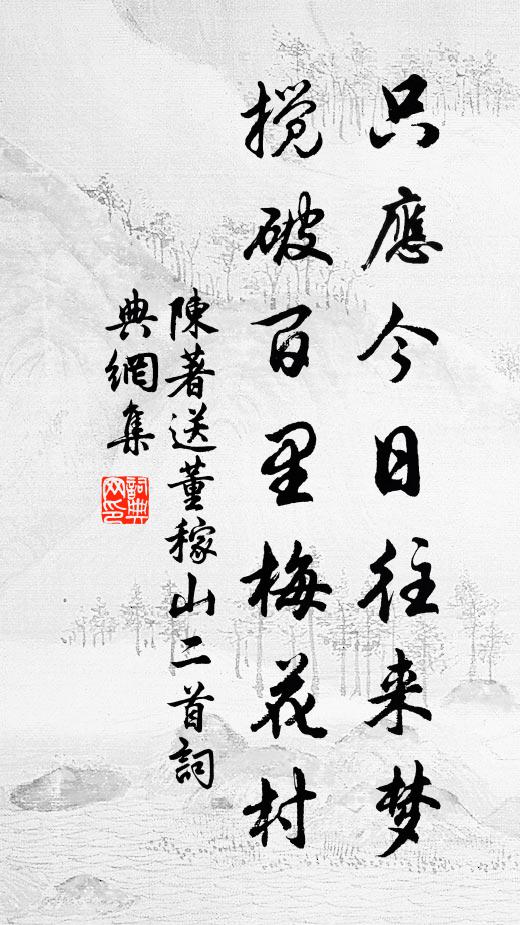 只應今日往来梦
攪破百里梅花村
陳著送董稼山二首詞
典網集
詞典
网印